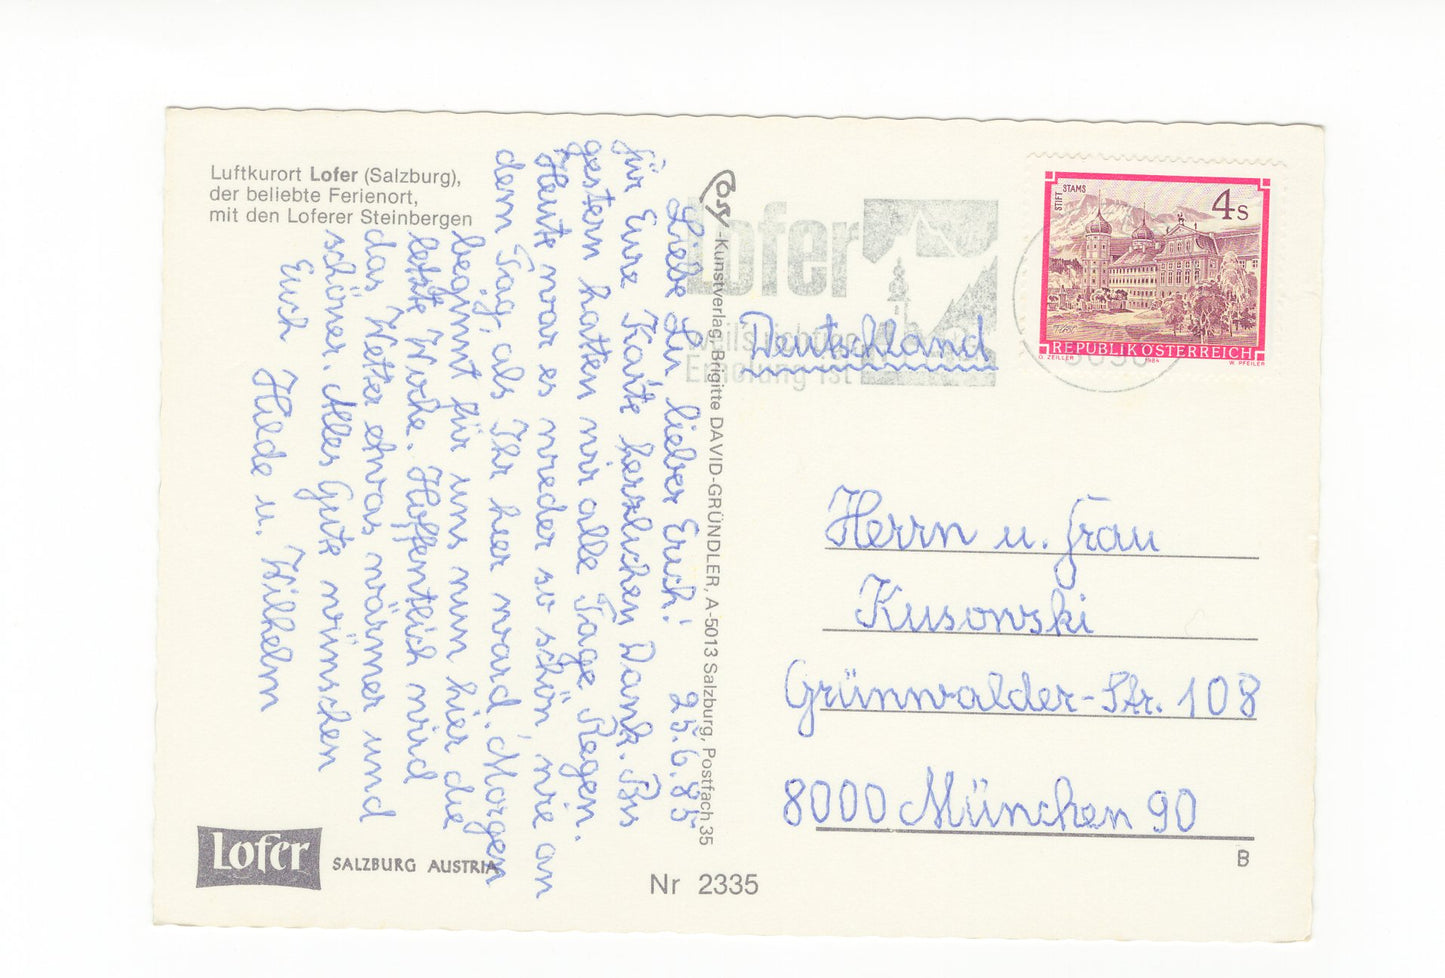 Luftkurort Lofer (Salzburg),
der beliebte Ferienort,
mit den Loferer Steinbergen
Liebe Lu lieber Erich! 25.6.85
für Eure Karte herzlichen Dank. Bis
gestern hatten wir alle Tage Regen.
Heute war es wieder so schön, wie an
dem Tag, als Ihr hier ward. Morgen
beginnt für uns nun hier die
letzte Woche. Hoffentlich wird
das Wetter etwas wärmer und
schöner. Alles Gute wünschen
Euch
Hilde u. Wilhelm
Lofer
SALZBURG AUSTRIA
-Kunstverlag, Brigitte DAVID-GRÜNDLER, A-5013 Salzburg, Postfach 35
Nr 2335
Lofer
weil's richtige
Erholung ist
STIFT STAMS
4s
REPUBLIK ÖSTERREICH
O. ZEILLER 1984 W. PFEILER
Deutschland
Herrn u. Frau
Kusowski
Grünwalder-Str. 108
8000 München 90
B